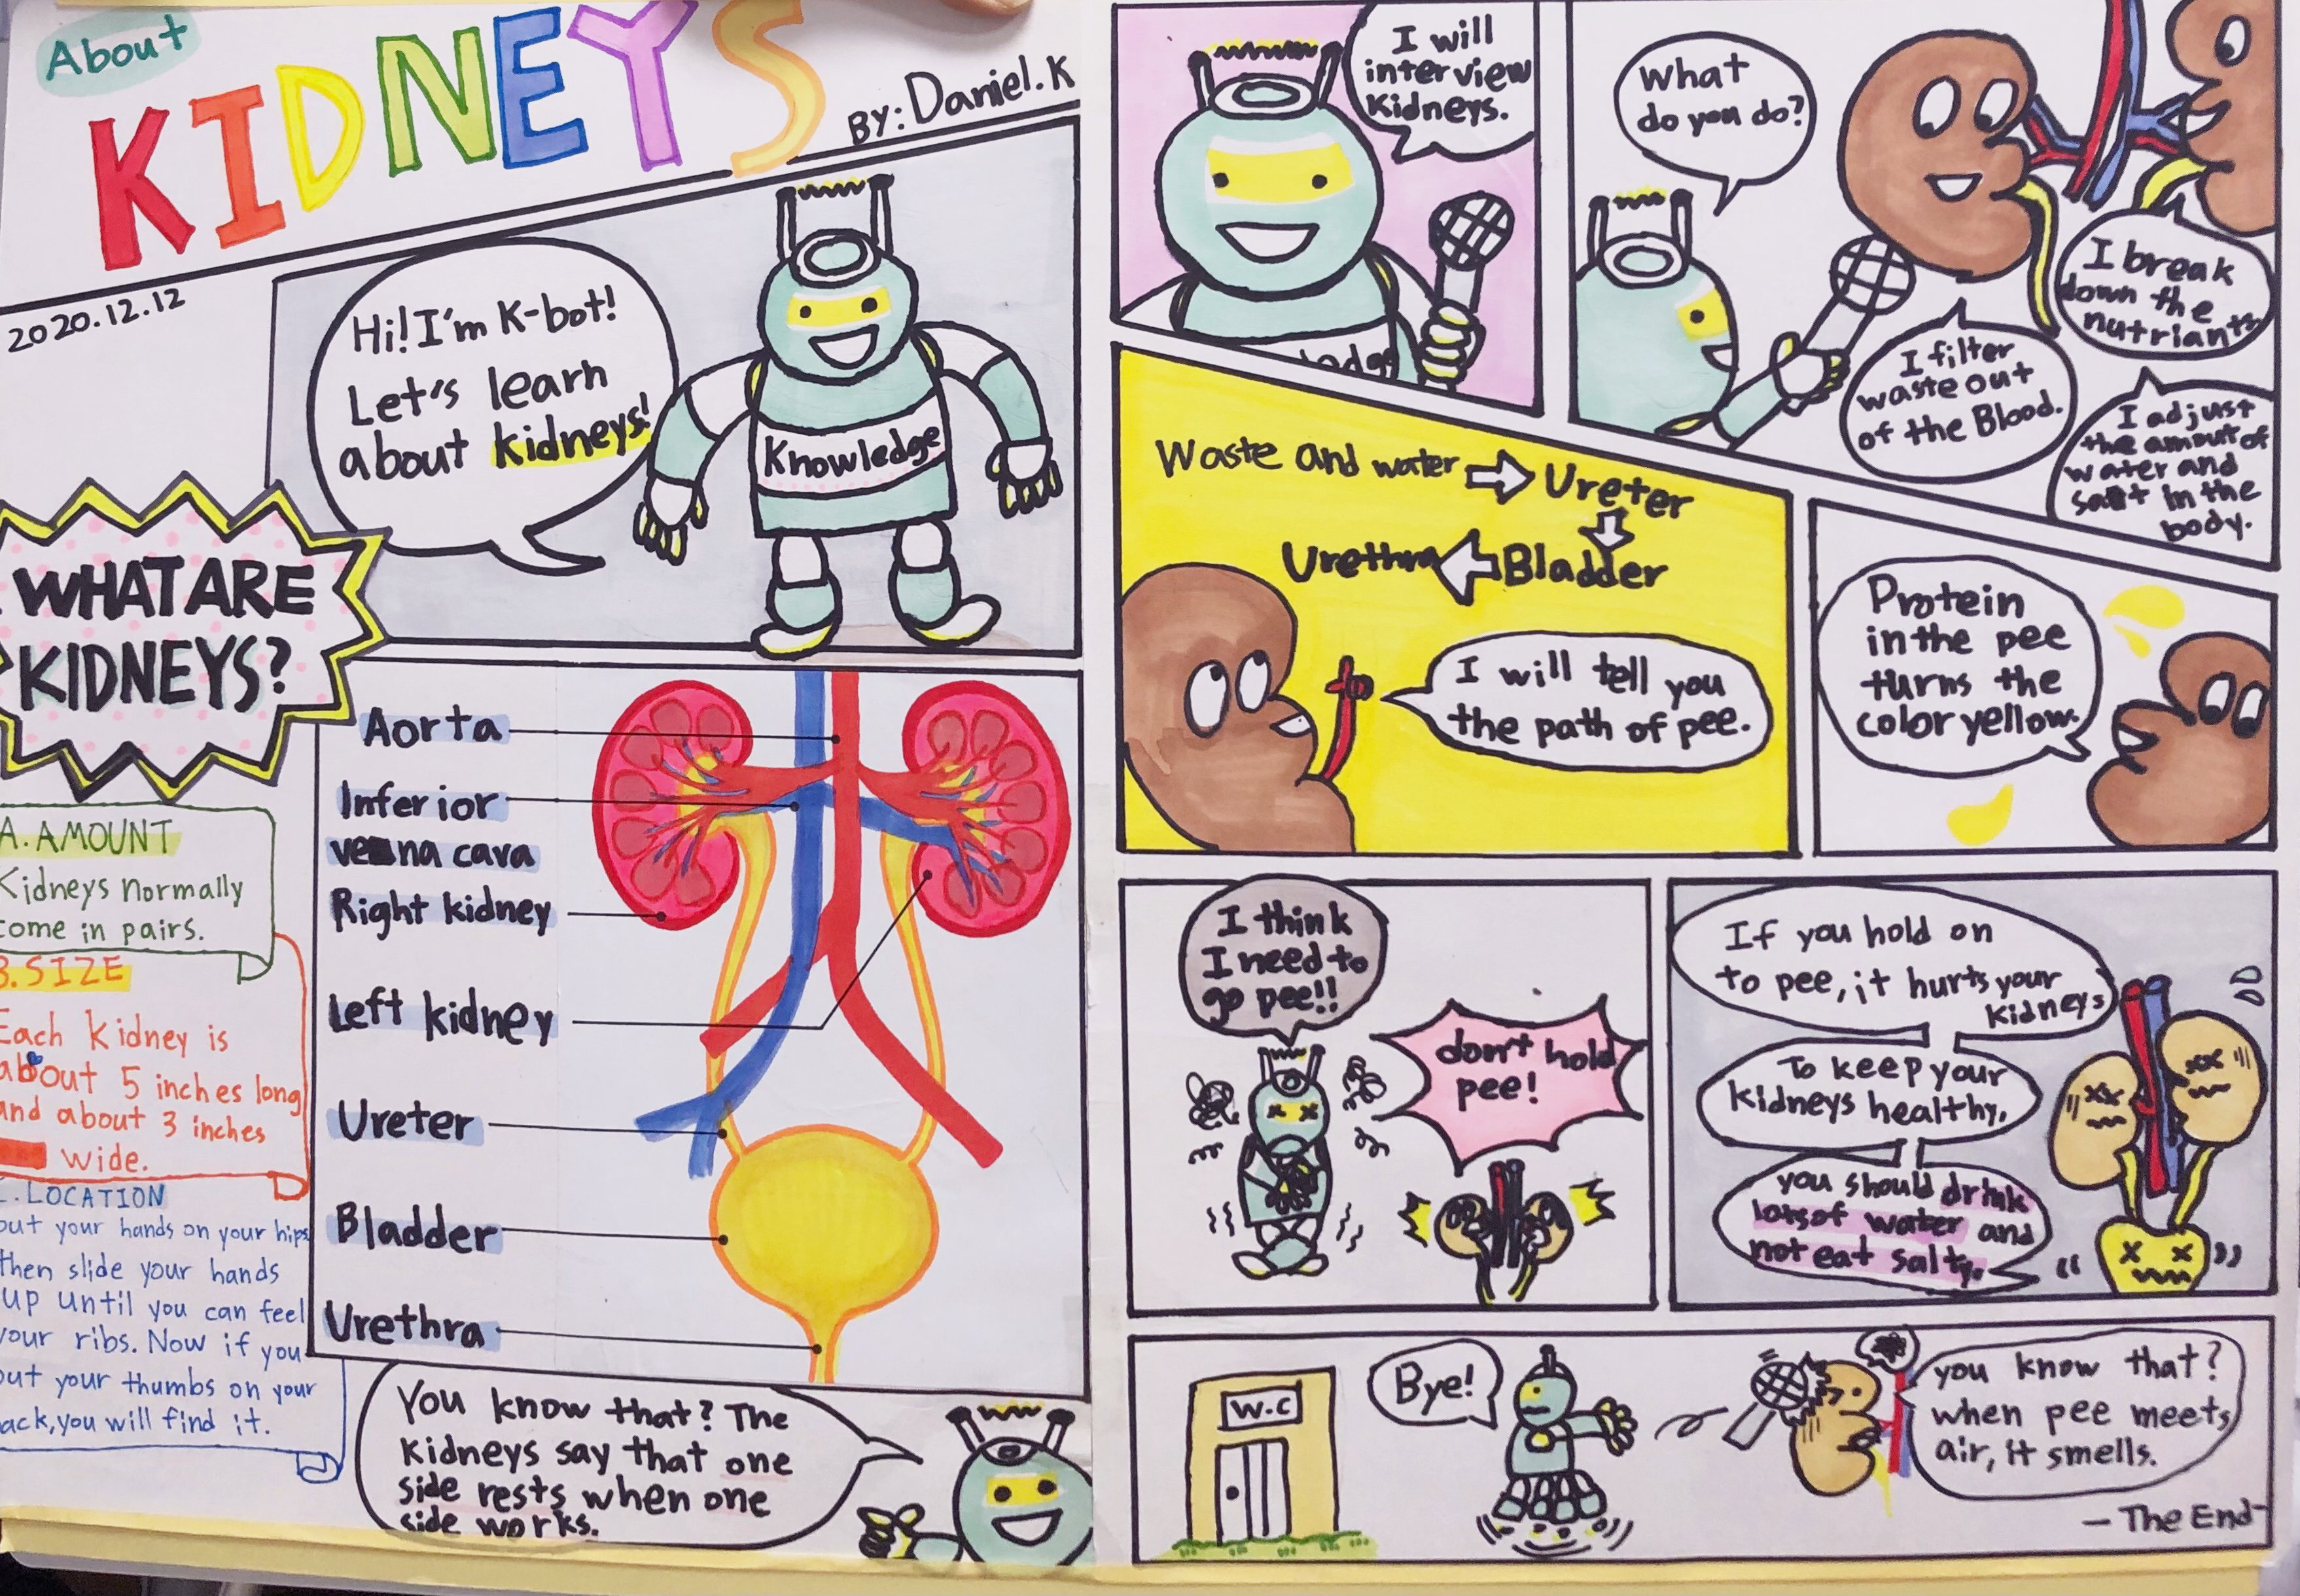 About
KIDNEYS
BY: Daniel.K
2020.12.12
Hi! I'm K-bot!
Let's learn
about kidneys!
Knowledge
WHAT ARE
KIDNEYS?
A. AMOUNT
Kidneys normally
come in pairs.
B. SIZE
Each kidney is
about 5 inches long
and about 3 inches
wide.
C. LOCATION
put your hands on your hips
then slide your hands
up until you can feel
your ribs. Now if you
put your thumbs on your
back, you will find it.
Aorta
Inferior
vena cava
Right kidney
Left kidney
Ureter
Bladder
Urethra
You know that? The
kidneys say that one
side rests when one
side works.
I will
interview
kidneys.
What
do you do?
I filter
waste out
of the Blood.
I break
down the
nutriants
I adjust
the amout of
water and
salt in the
body.
Waste and water ⇨ Ureter
⇩
Urethra ⇦ Bladder
I will tell you
the path of pee.
Protein
in the pee
turns the
color yellow.
I think
I need to
go pee!!
don't hold
pee!
If you hold on
to pee, it hurts your
kidneys
To keep your
kidneys healthy,
you should drink
lots of water and
not eat salty.
W.C
Bye!
you know that?
when pee meets
air, it smells.
- The End -